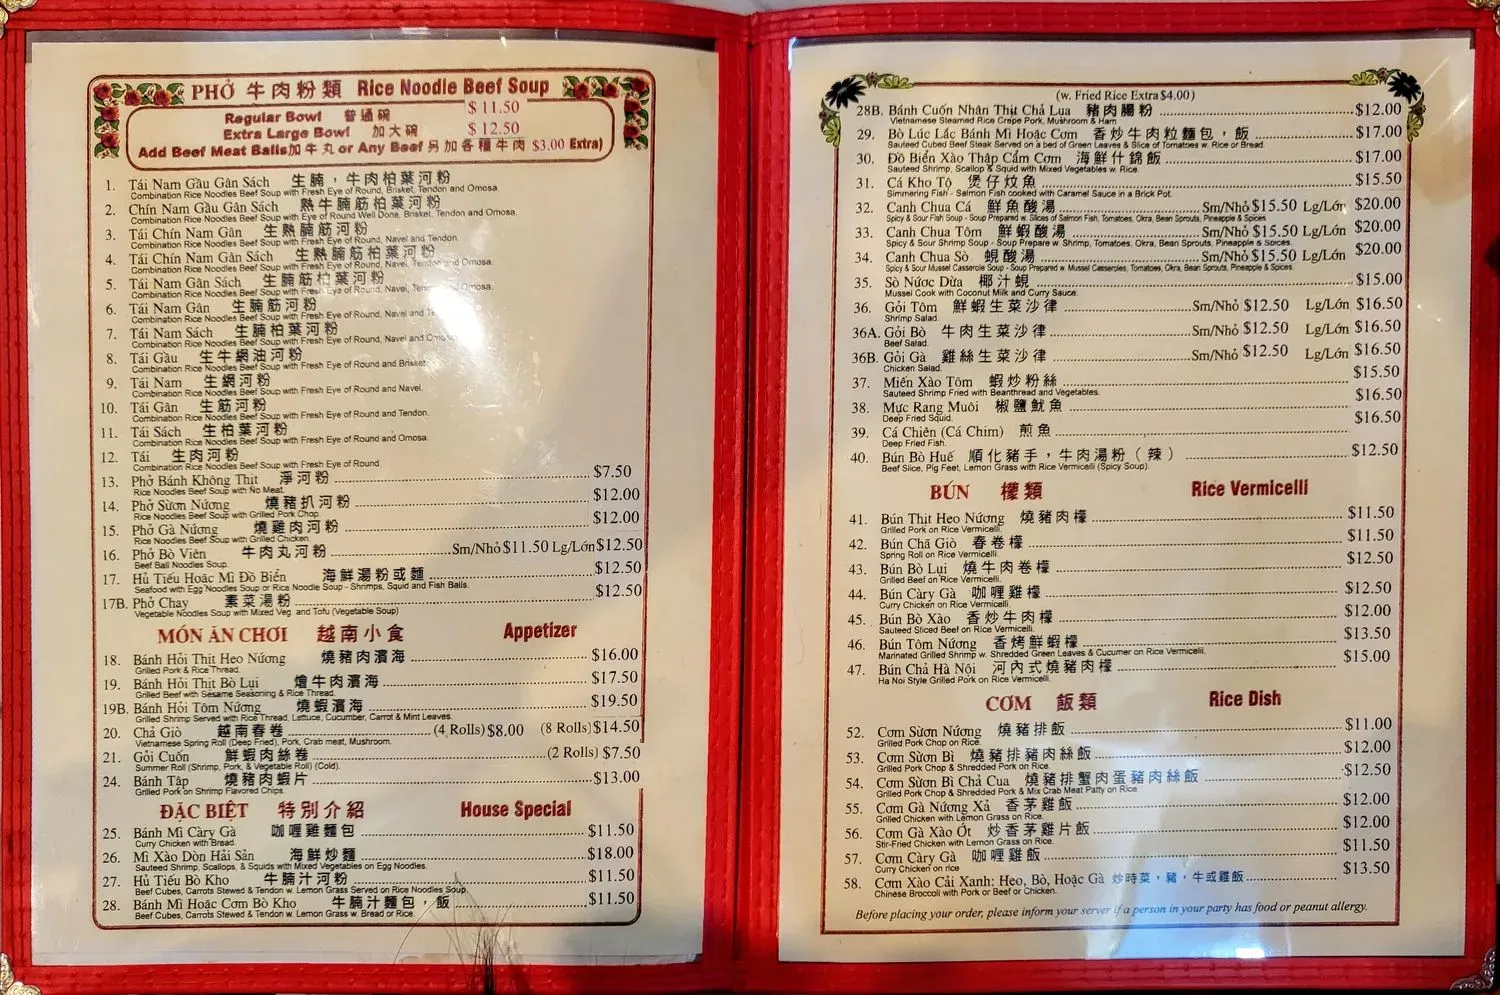 PHỞ 牛肉粉類 Rice Noodle Beef Soup
Regular Bowl 普通碗 $ 11.50
Extra Large Bowl 加大碗 $ 12.50
Add Beef Meat Balls加牛丸 or Any Beef 另加各種牛肉 $3.00 Extra)
1. Tái Nam Gầu Gân Sách 生腩，牛肉柏葉河粉
Combination Rice Noodles Beef Soup with Fresh Eye of Round, Brisket, Tendon and Omosa.
2. Chín Nam Gầu Gân Sách 熟牛腩筋柏葉河粉
Combination Rice Noodles Beef Soup with Eye of Round Well Done, Brisket, Tendon and Omosa.
3. Tái Chín Nam Gân 生熟腩筋河粉
Combination Rice Noodles Beef Soup with Fresh Eye of Round, Navel and Tendon.
4. Tái Chín Nam Gân Sách 生熟腩筋柏葉河粉
Combination Rice Noodles Beef Soup with Fresh Eye of Round, Navel, Tendon and Omosa.
5. Tái Nam Gân Sách 生腩筋柏葉河粉
Combination Rice Noodles Beef Soup with Fresh Eye of Round, Navel, Tendon and Omosa.
6. Tái Nam Gân 生腩筋河粉
Combination Rice Noodles Beef Soup with Fresh Eye of Round, Navel and
7. Tái Nam Sách 生腩柏葉河粉
Combination Rice Noodles Beef Soup with Fresh Eye of Round, Navel and
8. Tái Gầu 生牛網油河粉
Combination Rice Noodles Beef Soup with Fresh Eye of Round and Brisket.
9. Tái Nam 生網河粉
Combination Rice Noodles Beef Soup with Fresh Eye of Round and Navel.
10. Tái Gân 生筋河粉
Combination Rice Noodles Beef Soup with Fresh Eye of Round and Tendon.
11. Tái Sách 生柏葉河粉
Combination Rice Noodles Beef Soup with Fresh Eye of Round and Omosa.
12. Tái 生肉河粉
Combination Rice Noodles Beef Soup with Fresh Eye of Round.
13. Phở Bánh Không Thịt 淨河粉 $7.50
Rice Noodles Beef Soup with No Meat.
14. Phở Sườn Nướng 燒豬扒河粉 $12.00
Rice Noodles Beef Soup with Grilled Pork Chop.
15. Phở Gà Nướng 燒雞肉河粉 $12.00
Rice Noodles Beef Soup with Grilled Chicken.
16. Phở Bò Viên 牛肉丸河粉 Sm/Nhỏ $11.50 Lg/Lớn $12.50
Beef Ball Noodles Soup.
17. Hủ Tiếu Hoặc Mì Đồ Biển 海鮮湯粉或麵 $12.50
Seafood with Egg Noodles Soup or Rice Noodle Soup - Shrimps, Squid and Fish Balls.
17B. Phở Chay 素菜湯粉 $12.50
Vegetable Noodles Soup with Mixed Veg. and Tofu (Vegetable Soup)
MÓN ĂN CHƠI 越南小食 Appetizer
18. Bánh Hỏi Thịt Heo Nướng 燒豬肉濱海 $16.00
Grilled Pork & Rice Thread.
19. Bánh Hỏi Thịt Bò Lụi 燴牛肉濱海 $17.50
Grilled Beef with Sesame Seasoning & Rice Thread.
19B. Bánh Hỏi Tôm Nướng 燒蝦濱海 $19.50
Grilled Shrimp Served with Rice Thread, Lettuce, Cucumber, Carrot & Mint Leaves.
20. Chả Giò 越南春卷 (4 Rolls) $8.00 (8 Rolls) $14.50
Vietnamese Spring Roll (Deep Fried), Pork, Crab meat, Mushroom.
21. Gỏi Cuốn 鮮蝦肉絲卷 (2 Rolls) $7.50
Summer Roll (Shrimp, Pork, & Vegetable Roll) (Cold).
24. Bánh Tâp 燒豬肉蝦片 $13.00
Grilled Pork on Shrimp Flavored Chips.
ĐẶC BIỆT 特別介紹 House Special
25. Bánh Mì Càry Gà 咖喱雞麵包 $11.50
Curry Chicken with Bread.
26. Mì Xào Dòn Hải Sản 海鮮炒麵 $18.00
Sauteed Shrimp, Scallops, & Squids with Mixed Vegetables on Egg Noodles.
27. Hủ Tiếu Bò Kho 牛腩汁河粉 $11.50
Beef Cubes, Carrots Stewed & Tendon w. Lemon Grass Served on Rice Noodles Soup.
28. Bánh Mì Hoặc Cơm Bò Kho 牛腩汁麵包，飯 $11.50
Beef Cubes, Carrots Stewed & Tendon w. Lemon Grass w. Bread or Rice.
(w. Fried Rice Extra $4.00)
28B. Bánh Cuốn Nhân Thịt Chả Lụa 豬肉腸粉 $12.00
Vietnamese Steamed Rice Crepe Pork, Mushroom & Ham
29. Bò Lúc Lắc Bánh Mì Hoặc Cơm 香炒牛肉粒麵包，飯 $17.00
Sauteed Cubed Beef Steak Served on a bed of Green Leaves & Slice of Tomatoes w. Rice or Bread.
30. Đồ Biển Xào Thập Cẩm Cơm 海鮮什錦飯 $17.00
Sauteed Shrimp, Scallop & Squid with Mixed Vegetables w. Rice.
31. Cá Kho Tộ 煲仔炆魚 $15.50
Simmering Fish - Salmon Fish cooked with Caramel Sauce in a Brick Pot.
32. Canh Chua Cá 鮮魚酸湯 Sm/Nhỏ $15.50 Lg/Lớn $20.00
Spicy & Sour Fish Soup - Soup Prepared w. Slices of Salmon Fish, Tomatoes, Okra, Bean Sprouts, Pineapple & Spices
33. Canh Chua Tôm 鮮蝦酸湯 Sm/Nhỏ $15.50 Lg/Lớn $20.00
Spicy & Sour Shrimp Soup - Soup Prepare w. Shrimp, Tomatoes, Okra, Bean Sprouts, Pineapple & Spices.
34. Canh Chua Sò 蜆酸湯 Sm/Nhỏ $15.50 Lg/Lớn $20.00
Spicy & Sour Mussel Casserole Soup - Soup Prepared w. Mussel Casseroles, Tomatoes, Okra, Bean Sprouts, Pineapple & Spices.
35. Sò Nước Dừa 椰汁蜆 $15.00
Mussel Cook with Coconut Milk and Curry Sauce.
36. Gỏi Tôm 鮮蝦生菜沙律 Sm/Nhỏ $12.50 Lg/Lớn $16.50
Shrimp Salad.
36A. Gỏi Bò 牛肉生菜沙律 Sm/Nhỏ $12.50 Lg/Lớn $16.50
Beef Salad.
36B. Gỏi Gà 雞絲生菜沙律 Sm/Nhỏ $12.50 Lg/Lớn $16.50
Chicken Salad.
37. Miến Xào Tôm 蝦炒粉絲 $15.50
Sauteed Shrimp Fried with Beanthread and Vegetables.
38. Mực Rang Muối 椒鹽魷魚 $16.50
Deep Fried Squid.
39. Cá Chiên (Cá Chim) 煎魚 $16.50
Deep Fried Fish.
40. Bún Bò Huế 順化豬手，牛肉湯粉（辣） $12.50
Beef Slice, Pig Feet, Lemon Grass with Rice Vermicelli (Spicy Soup).
BÚN 檬類 Rice Vermicelli
41. Bún Thịt Heo Nướng 燒豬肉檬 $11.50
Grilled Pork on Rice Vermicelli.
42. Bún Chã Giò 春卷檬 $11.50
Spring Roll on Rice Vermicelli.
43. Bún Bò Lụi 燒牛肉卷檬 $12.50
Grilled Beef on Rice Vermicelli.
44. Bún Càry Gà 咖喱雞檬 $12.50
Curry Chicken on Rice Vermicelli.
45. Bún Bò Xào 香炒牛肉檬 $12.00
Sauteed Sliced Beef on Rice Vermicelli.
46. Bún Tôm Nướng 香烤鮮蝦檬 $13.50
Marinated Grilled Shrimp w. Shredded Green Leaves & Cucumer on Rice Vermicelli.
47. Bún Chả Hà Nội 河內式燒豬肉檬 $15.00
Ha Noi Style Grilled Pork on Rice Vermicelli.
CƠM 飯類 Rice Dish
52. Cơm Sườn Nướng 燒豬排飯 $11.00
Grilled Pork Chop on Rice.
53. Cơm Sườn Bì 燒豬排豬肉絲飯 $12.00
Grilled Pork Chop & Shredded Pork on Rice.
54. Cơm Sườn Bì Chả Cua 燒豬排蟹肉蛋豬肉絲飯 $12.50
Grilled Pork Chop & Shredded Pork & Mix Crab Meat Patty on Rice.
55. Cơm Gà Nướng Xả 香茅雞飯 $12.00
Grilled Chicken with Lemon Grass on Rice.
56. Cơm Gà Xào Ớt 炒香茅雞片飯 $12.00
Stir-Fried Chicken with Lemon Grass on Rice.
57. Cơm Càry Gà 咖喱雞飯 $11.50
Curry Chicken on rice
58. Cơm Xào Cải Xanh: Heo, Bò, Hoặc Gà 炒時菜，豬，牛或雞飯 $13.50
Chinese Broccoli with Pork or Beef or Chicken.
Before placing your order, please inform your server if a person in your party has food or peanut allergy.